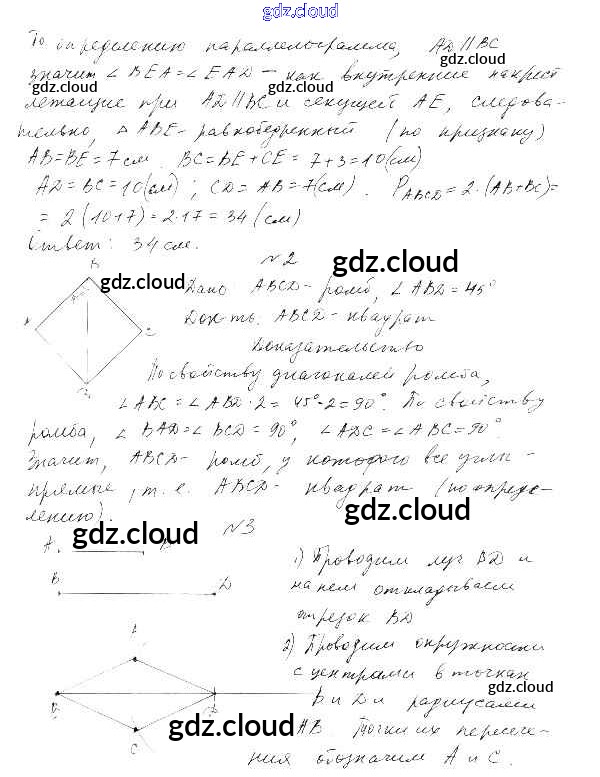 gdz.cloud
По определению параллелограмма, AD||BC
gdz.cloud gdz.cloud
значит ∠BEA=∠EAD – как внутренние накрест
gdz.cloud gdz.cloud
лежащие при AD||BC и секущей AE, следова-
тельно, △ABE – равнобедренный (по признаку)
AB=BE=7см. BC=BE+CE=7+3=10(см)
gdz.cloud gdz.cloud
AD=BC=10(см); CD=AB=7(см). P ABCD=2·(AB+BC)=
= 2(10+7)=2·17=34(см)
Ответ: 34см.
№2
gdz.cloud gdz.cloud
B
Дано: ABCD – ромб, ∠ABD=45°
A C
Док-ть: ABCD – квадрат
Доказательство
По свойству диагоналей ромба,
∠ABC=∠ABD·2=45°·2=90°. По свойству
ромба, ∠BAD=∠BCD=90°, ∠ADC=∠ABC=90°.
Значит, ABCD – ромб, у которого все углы –
прямые, т.е. ABCD – квадрат (по опреде-
gdz.cloud
лению).
gdz.cloud
№3
A B
B D
1) Проводим луч BD и
на нем откладываем
отрезок BD
2) Проводим окружности
с центрами в точках
gdz.cloud
B и D и радиусами
gdz.cloud
AB. Точки их пересече-
C
gdz.cloud
ния обозначим A и C.